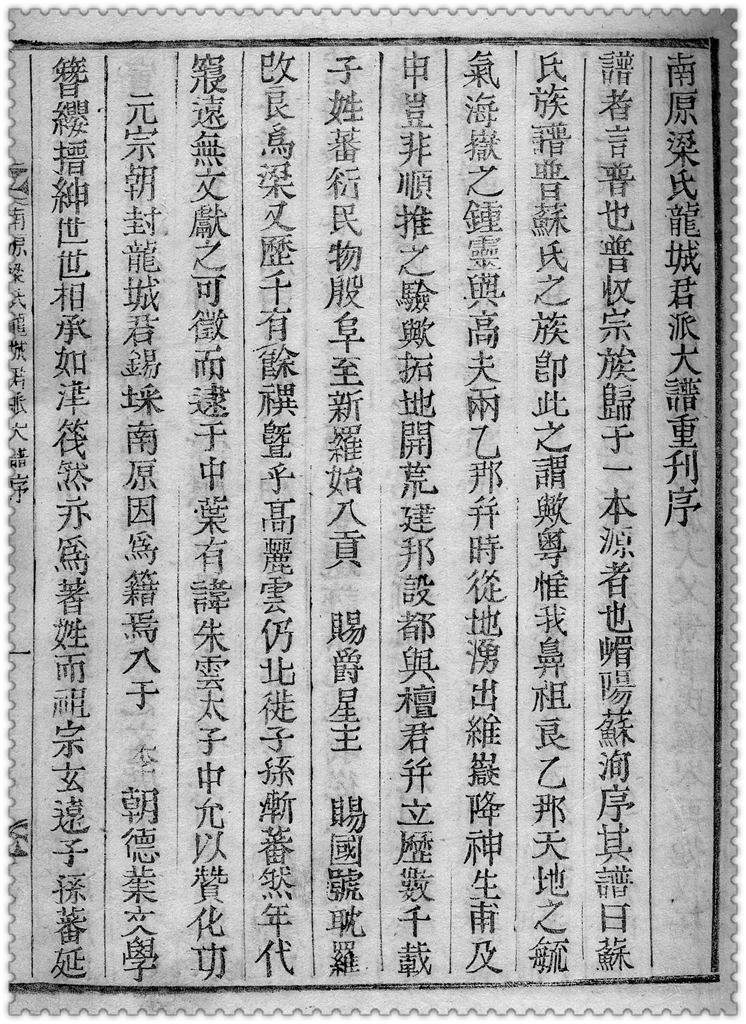 南原梁氏龍城君派大譜重刊序
譜者言普也普收宗族歸于一本源者也嵋陽蘇洵序其譜曰蘇
氏族譜普蘇氏之族卽此之謂歟粤惟我鼻祖良乙那天地之毓
氣海嶽之鍾靈與高夫兩乙那幷時從地湧出維嶽降神生甫及
申豈非順推之驗歟拓地開荒建邦設都與檀君幷立歷數千載
子姓蕃衍民物殷阜至新羅始入貢 賜爵星主 賜國號耽羅
改良爲梁又歷千有餘禩曁乎高麗雲仍北徙子孫漸蕃然年代
寖遠無文獻之可徵而逮于中葉有諱朱雲太子中允以贊化功
元宗朝封龍城君錫埰南原因爲籍焉入于 李 朝德業文學
簪纓搢紳世世相承如津筏然亦爲著姓而祖宗玄遠子孫蕃延
南原梁氏龍城君派大譜序
一